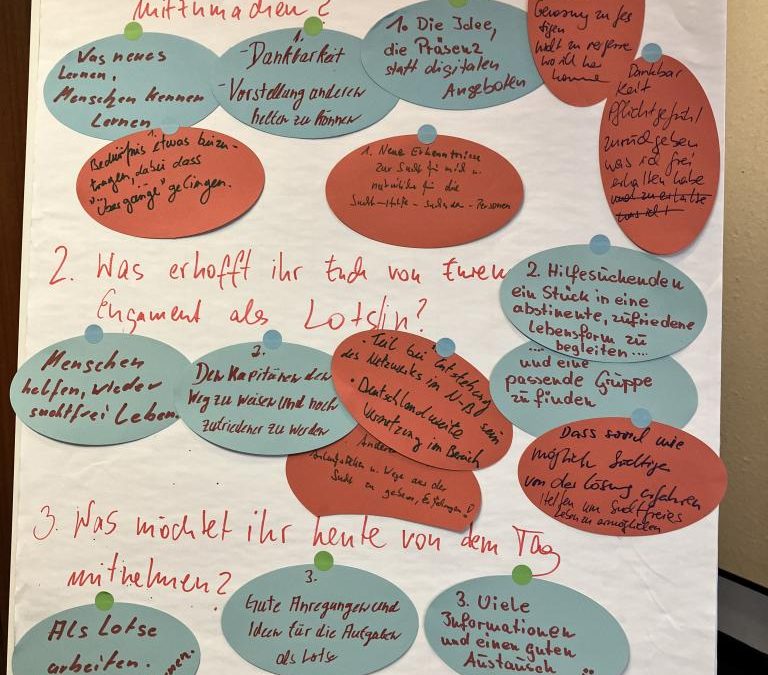 mitzumachen?
Was neues
Lernen,
Menschen kennen
Lernen
1.
-Dankbarkeit
-Vorstellung anderen
helfen zu können
1. Die Idee,
die Präsenz
statt digitalen
Angeboten
Genesung zu fes
tigen
nicht zu
wo ich her
komme
Dankbar
keit
Pflichtgefühl
zurückgeben
was ich frei
erhalten habe
1.
Bedürfnis etwas beizu-
tragen, dabei dass
"Übergänge" gelingen.
1. Neue Erkenntnisse
zur Sucht für mich u.
natürlich für die
Sucht-Hilfe-suchende-Personen
2. Was erhofft ihr Euch von Euren
Engament als Lotsin?
2. Hilfesuchenden
ein Stück in eine
abstinente, zufriedene
Lebensform zu
begleiten...
...und eine
passende Gruppe
zu finden
Menschen
helfen, wieder
suchtfrei Leben.
2.
Den Kapitänen den
Weg zu weisen und noch
zufriedener zu werden
• Teil bei Entstehung
des Netzwerks im N-B sein
• Deutschlandweite
Vernetzung im Bereich
Anderen
u. Wege aus der
Sucht zu geben,
Dass soviel wie
möglich Süchtige
von der Lösung erfahren
Helfen um Suchtfreies
Leben zu ermöglichen
3. Was möchtet ihr heute von dem Tag
mitnehmen?
Als Lotse
arbeiten.
3.
Gute Anregungen und
Ideen für die Aufgaben
als Lotse
3. Viele
Informationen
und einen guten
Austausch ..